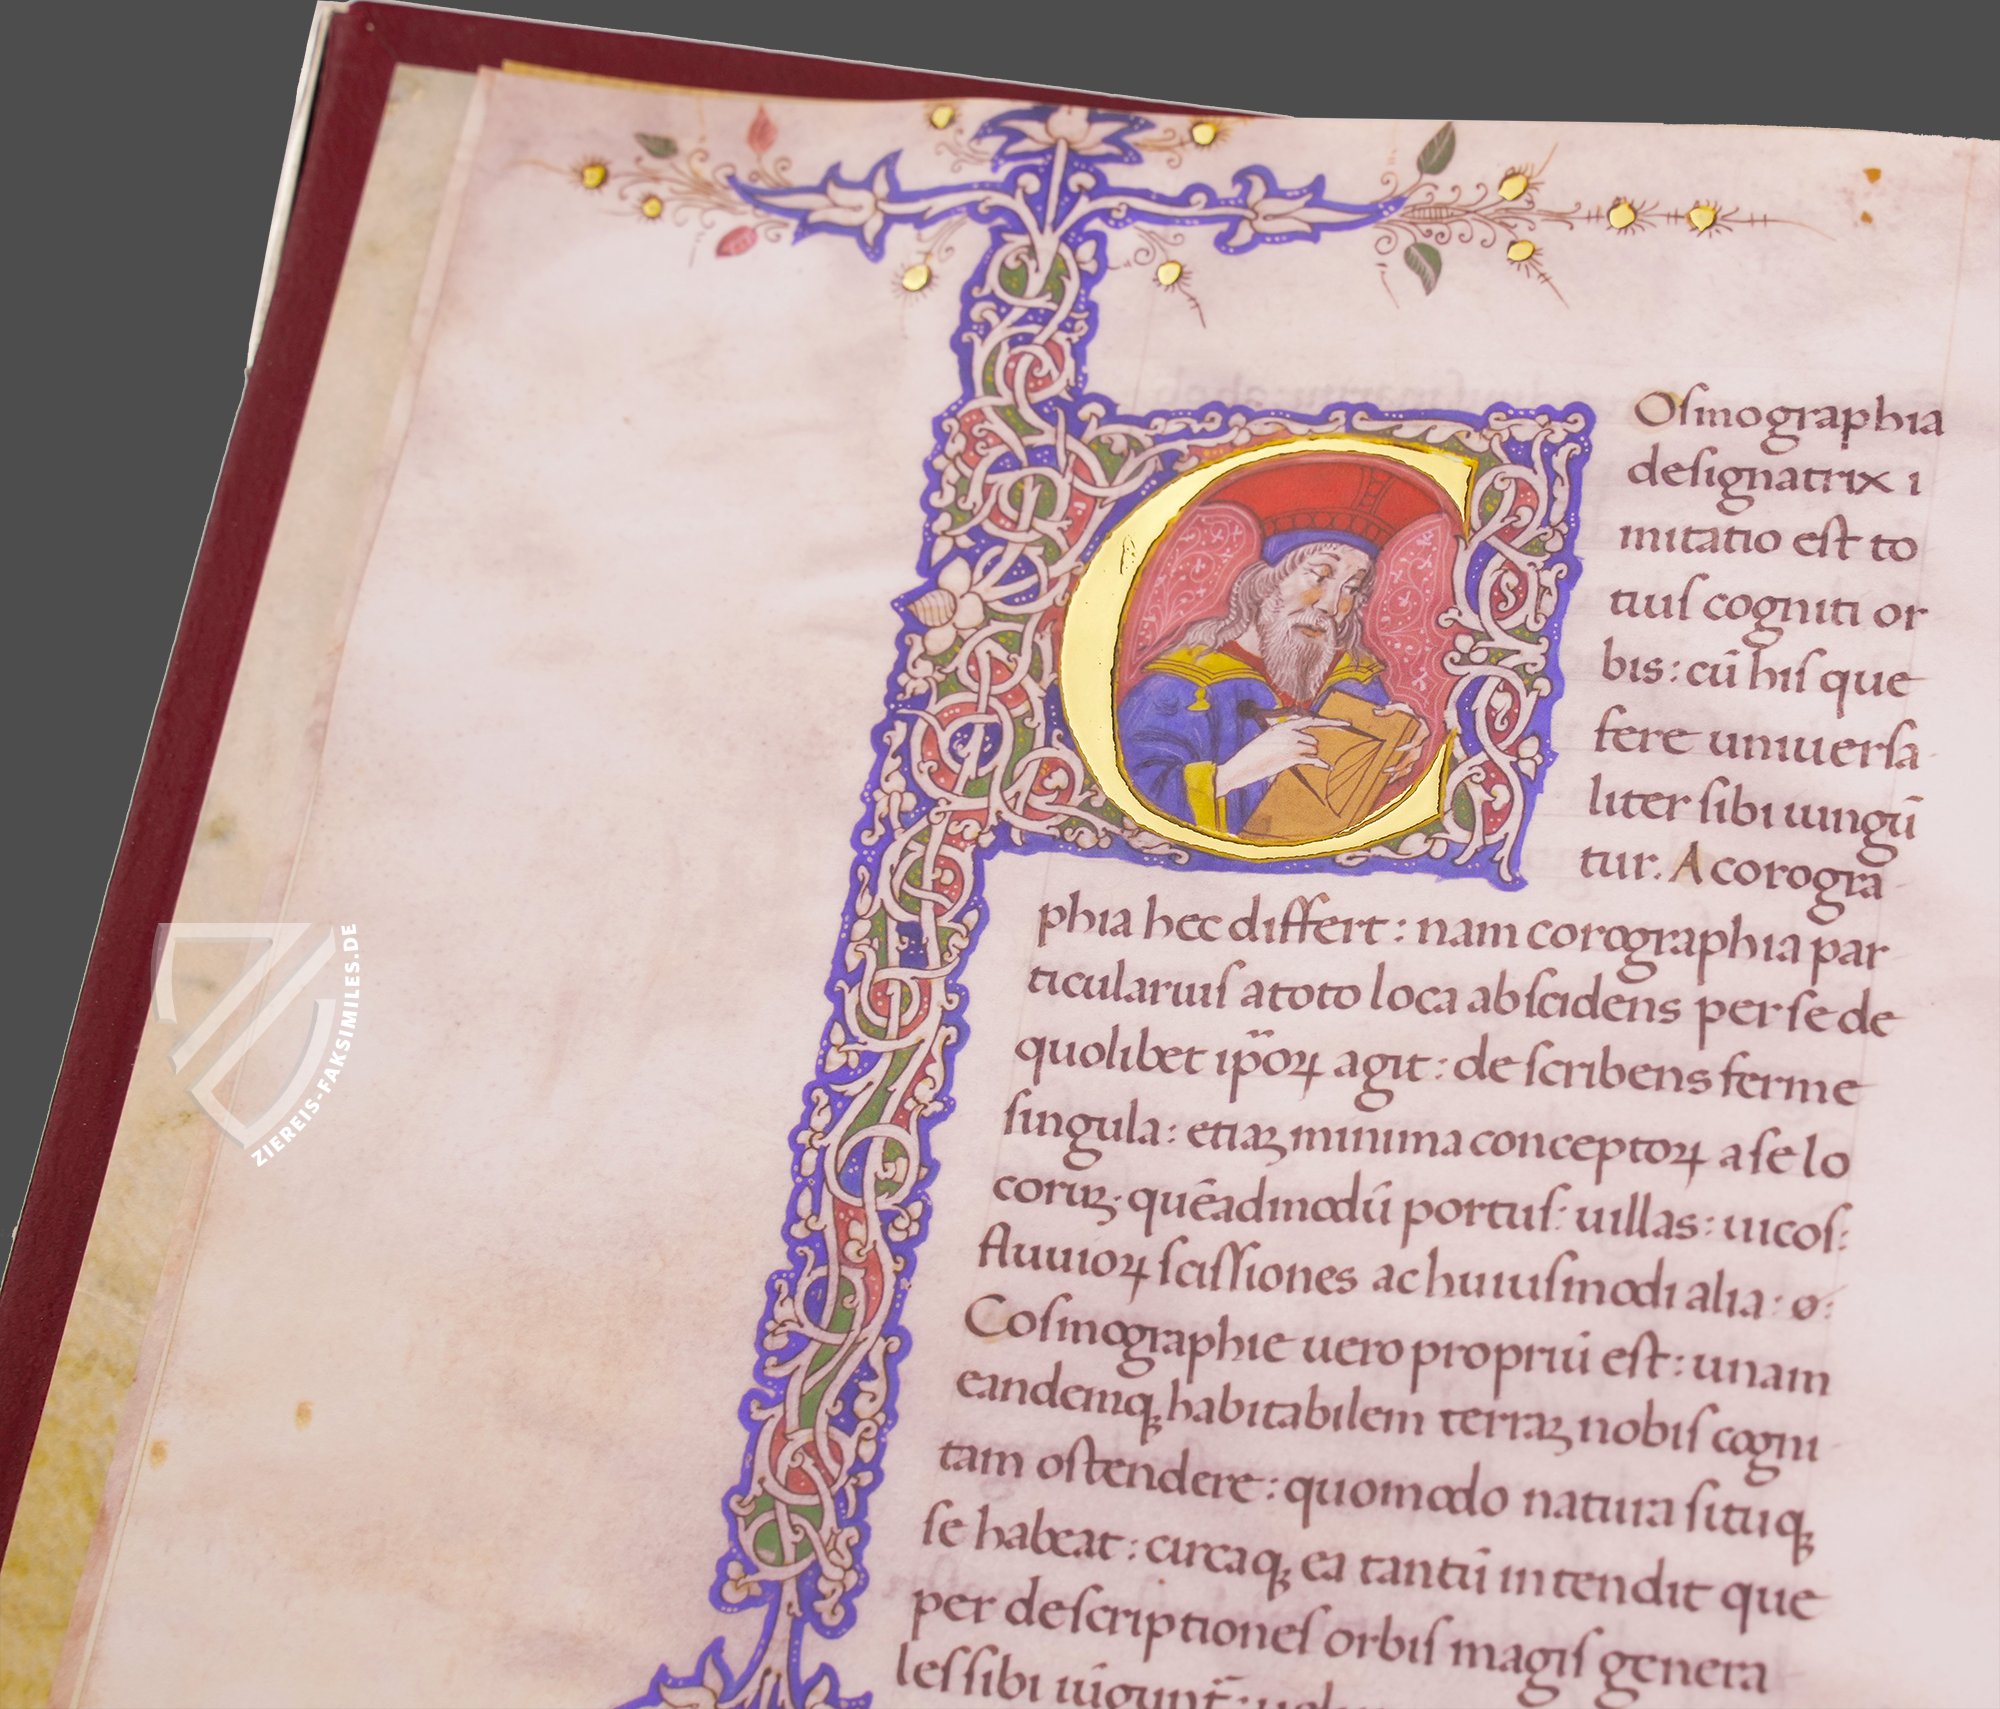 COſmographia
deſignatrix i
mitatio eſt to
tiuſ cogniti or
bis: cū hiſ que
fere uniuerſa
liter ſibi iungū
tur. A corogra
phia hec differt: nam corographia par
ticulariuſ a toto loca abſcidens per ſe de
quolibet ip̄oꝝ agit: deſcribens ferme
ſingula: etiaꝫ minima conceptoꝝ a ſe lo
coruꝫ. quēadmodū portuſ: uillas: uicoſ:
fluuioꝝ ſciſſiones ac huiuſmodi alia: ø:
Coſmographie uero propriū eſt: unam
eandemqꝫ habitabilem terraꝫ nobiſ cogni
tam oſtendere: quomodo natura ſituqꝫ
ſe habeat: circaqꝫ ea tantū intendit que
per deſcriptioneſ orbiſ magiſ genera
leſ ſibi
ZIEREIS-FAKSIMILES.DE